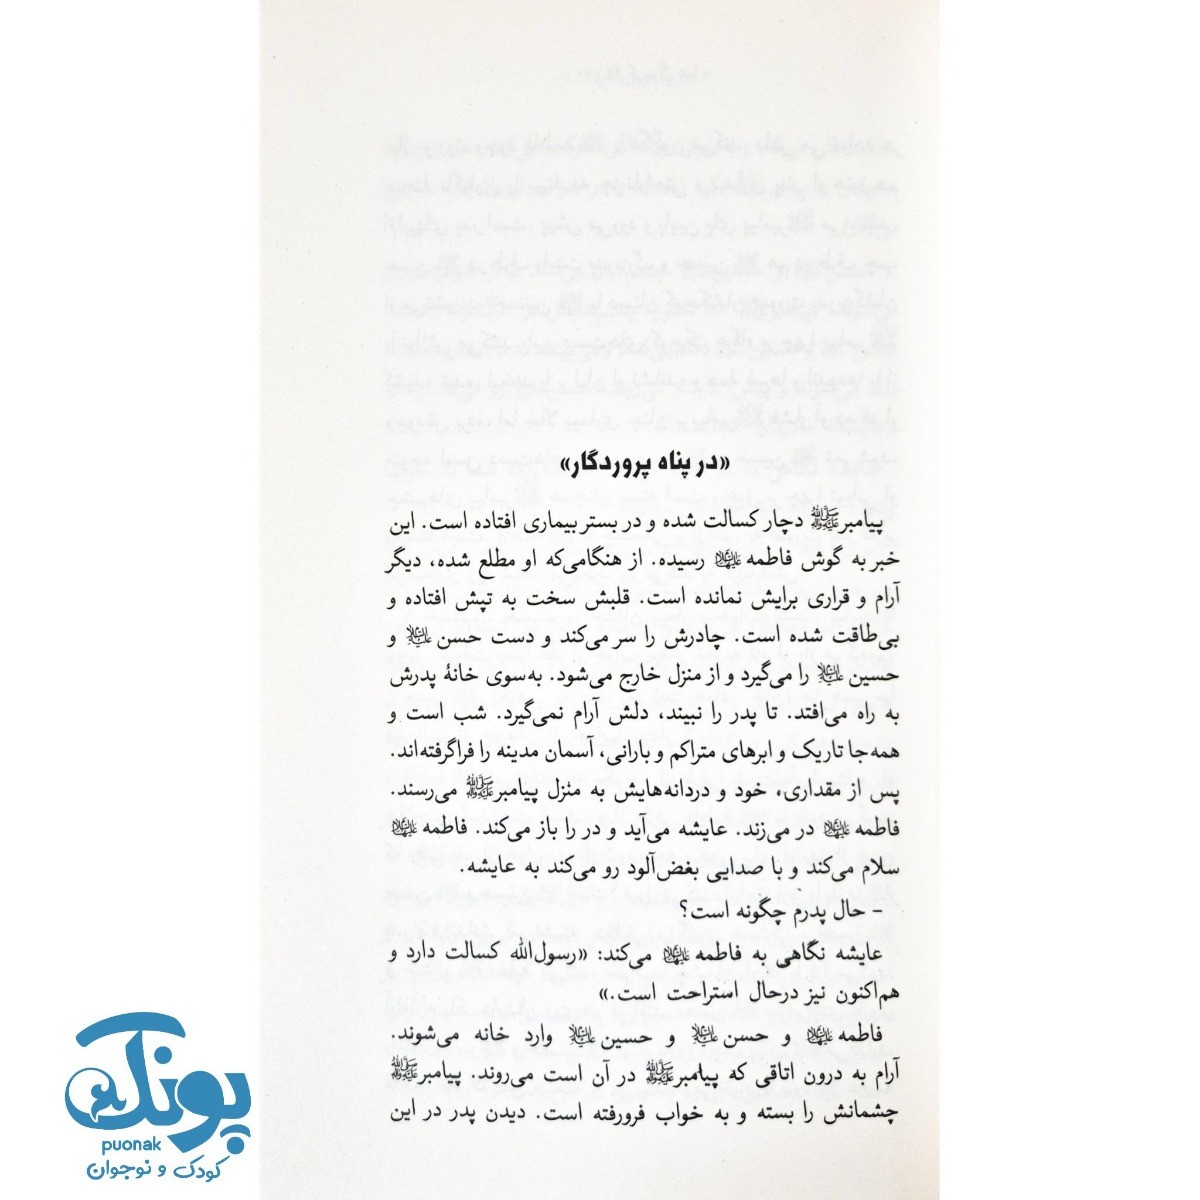 «در پناه پروردگار»
پیامبرﷺ دچار کسالت شده و در بستر بیماری افتاده است. این
خبر به گوش فاطمه علیهاالسلام رسیده. از هنگامی‌که او مطلع شده، دیگر
آرام و قراری برایش نمانده است. قلبش سخت به تپش افتاده و
بی‌طاقت شده است. چادرش را سر می‌کند و دست حسن علیه‌السلام و
حسین علیه‌السلام را می‌گیرد و از منزل خارج می‌شود. به‌سوی خانهٔ پدرش
به راه می‌افتد. تا پدر را نبیند، دلش آرام نمی‌گیرد. شب است و
همه‌جا تاریک و ابرهای متراکم و بارانی، آسمان مدینه را فراگرفته‌اند.
پس از مقداری، خود و دردانه‌هایش به منزل پیامبرﷺ می‌رسند.
فاطمه علیهاالسلام در می‌زند. عایشه می‌آید و در را باز می‌کند. فاطمه علیهاالسلام
سلام می‌کند و با صدایی بغض‌آلود رو می‌کند به عایشه.
– حال پدرم چگونه است؟
عایشه نگاهی به فاطمه علیهاالسلام می‌کند: «رسول‌الله کسالت دارد و
هم‌اکنون نیز درحال استراحت است.»
فاطمه علیهاالسلام و حسن علیه‌السلام و حسین علیه‌السلام وارد خانه می‌شوند.
آرام به درون اتاقی که پیامبرﷺ در آن است می‌روند. پیامبرﷺ
چشمانش را بسته و به خواب فرورفته است. دیدن پدر در این
پونک
puonak
کودک و نوجوان